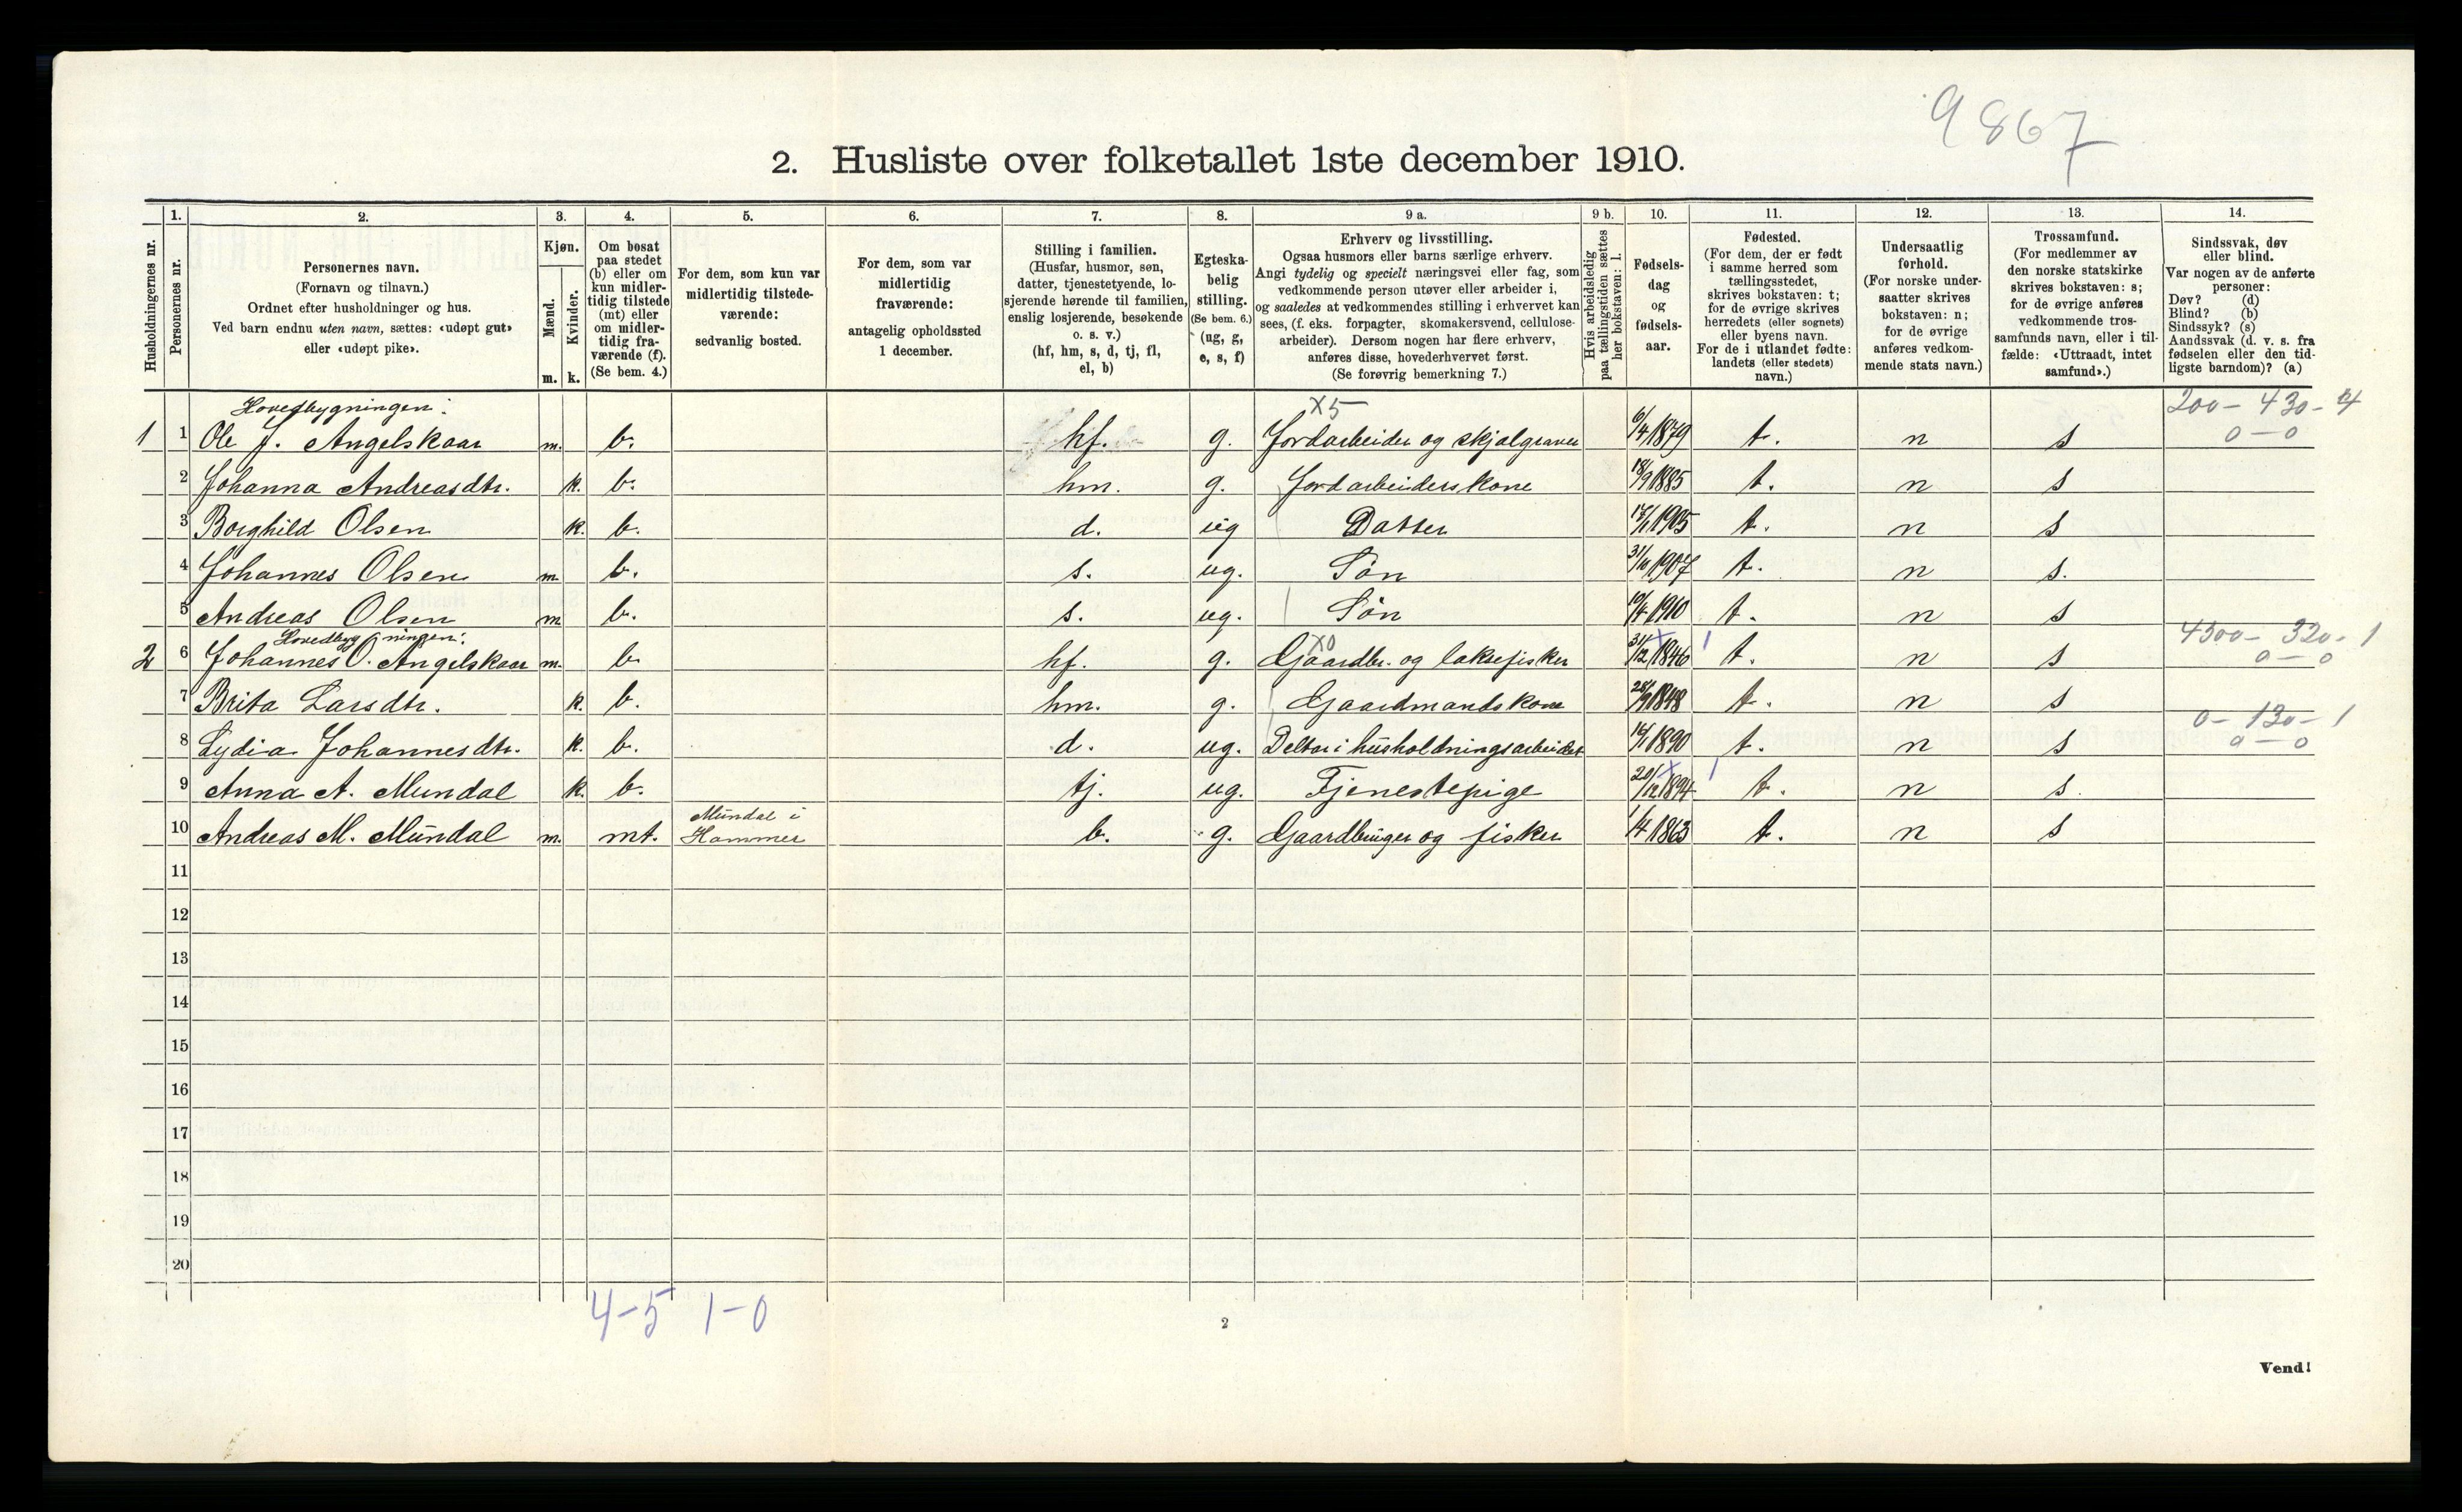 9867
2. Husliste over folketallet 1ste december 1910.
Husholdningernes nr.
1. Personernes nr.
2. Personernes navn.
(Fornavn og tilnavn.)
Ordnet efter husholdninger og hus.
Ved barn endnu uten navn, sættes: «udøpt gut»
eller «udøpt pike».
3. Kjøn.
Mænd. Kvinder.
m. k.
4. Om bosat
paa stedet
(b) eller om
kun midler-
tidig tilstede
(mt) eller
om midler-
tidig fra-
værende (f).
(Se bem. 4.)
5. For dem, som kun var
midlertidig tilstede-
værende:
sedvanlig bosted.
6. For dem, som var
midlertidig
fraværende:
antagelig opholdssted
1 december.
7. Stilling i familien.
(Husfar, husmor, søn,
datter, tjenestetyende, lo-
sjerende hørende til familien,
enslig losjerende, besøkende
o. s. v.)
(hf, hm, s, d, tj, fl,
el, b)
8. Egteska-
belig
stilling.
(Se bem. 6.)
(ug, g,
e, s, f)
9 a. Erhverv og livsstilling.
Ogsaa husmors eller barns særlige erhverv.
Angi tydelig og specielt næringsvei eller fag, som
vedkommende person utøver eller arbeider i,
og saaledes at vedkommendes stilling i erhvervet kan
sees, (f. eks. forpagter, skomakersvend, cellulose-
arbeider). Dersom nogen har flere erhverv,
anføres disse, hovederhvervet først.
(Se forøvrig bemerkning 7.)
9 b. Hvis arbeidsledig
paa tællingstiden sættes
her bokstaven: l.
10. Fødsels-
dag
og
fødsels-
aar.
11. Fødested.
(For dem, der er født
i samme herred som
tællingsstedet,
skrives bokstaven: t;
for de øvrige skrives
herredets (eller sognets)
eller byens navn.
For de i utlandet fødte:
landets (eller stedets)
navn.)
12. Undersaatlig
forhold.
(For norske under-
saatter skrives
bokstaven: n;
for de øvrige
anføres vedkom-
mende stats navn.)
13. Trossamfund.
(For medlemmer av
den norske statskirke
skrives bokstaven: s;
for de øvrige anføres
vedkommende tros-
samfunds navn, eller i til-
fælde: «Uttraadt, intet
samfund».)
14. Sindssvak, døv
eller blind.
Var nogen av de anførte
personer:
Døv? (d)
Blind? (b)
Sindssyk? (s)
Aandssvak (d. v. s. fra
fødselen eller den tid-
ligste barndom)? (a)
Hovedbygningen: X5 200 - 430 - 4
1 1 Ole J. Angelskaar m. b. hf. g. Jordarbeider og skjælgraver 6/4 1879 t. n s 0 - 0
2 Johanna Andreasdtr. k. b. hm. g. Jordarbeiderskone 18/9 1885 t. n s
3 Borghild Olsen k. b. d. ug Datter 1905 t. n s
4 Johannes Olsen m. b. s. ug. Søn 1907 t. n s.
5 Andreas Olsen m b. s. ug. Søn 1910 t. n s
Hovedbygningen: X0 4300 - 320 - 1
2 6 Johannes O. Angelskaar m. b. hf. g. Gaardbr. og laksefisker 31/12 1846 t. n s 0 - 0
7 Brita Larsdtr. k. b. hm. g. Gaardmandskone 28/9 1848 t. n s
0 - 130 - 1
8 Lydia Johannesdtr. k. b. d. ug. Deltar i husholdningsarbeidet 14/1 1890 t. n s 0 - 0
9 Anna A. Mundal k. b. tj. ug. Tjenestepige 20/12 1894 t. n s.
Mundal i
10 Andreas M. Mundal m. mt. Hammer b. g. Gaardbruger og fisker 1/4 1863 t. n s
11
12
13
14
15
16
17
18
19
20
4-5 1-0
2
Vend!